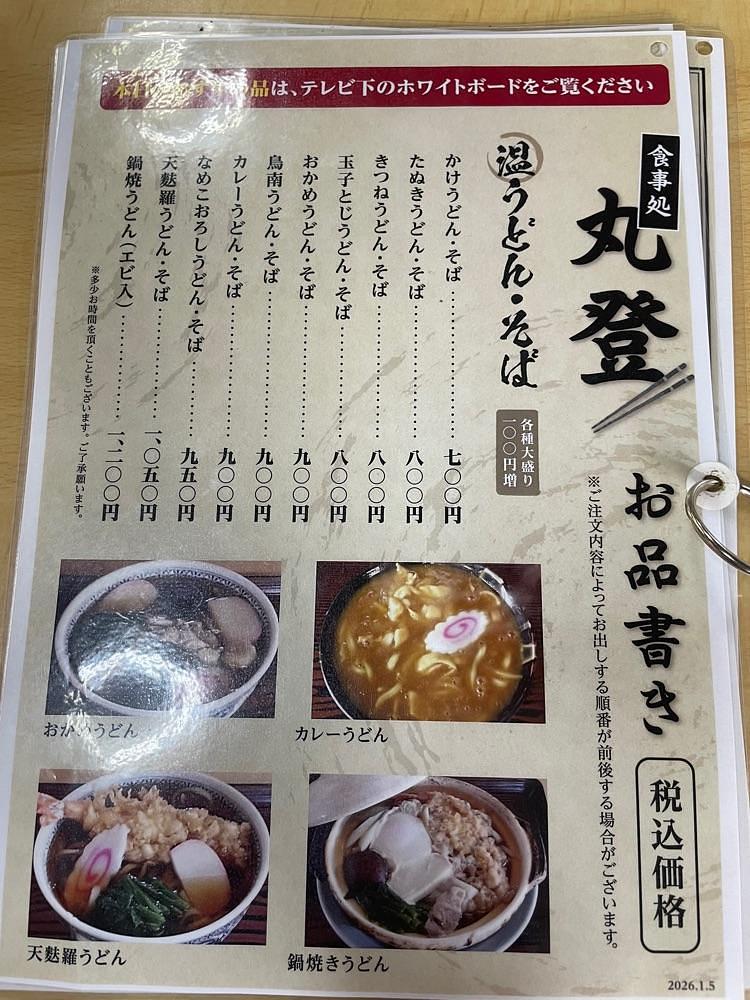 は、テレビ下のホワイトボードをご覧ください
食事処
丸登
お品書き
税込価格
※ご注文内容によってお出しする順番が前後する場合がございます。
温うどん・そば
各種大盛り
一〇〇円増
かけうどん・そば…………七〇〇円
たぬきうどん・そば…………八〇〇円
きつねうどん・そば…………八〇〇円
玉子とじうどん・そば…………八〇〇円
おかめうどん・そば…………九〇〇円
鳥南うどん・そば…………九〇〇円
カレーうどん・そば…………九〇〇円
なめこおろしうどん・そば…………九五〇円
天麩羅うどん・そば…………一、〇五〇円
鍋焼うどん(エビ入)…………一、二〇〇円
※多少お時間を頂くこともございます。ご了承願います。
おかめうどん
カレーうどん
天麩羅うどん
鍋焼きうどん
2026.1.5